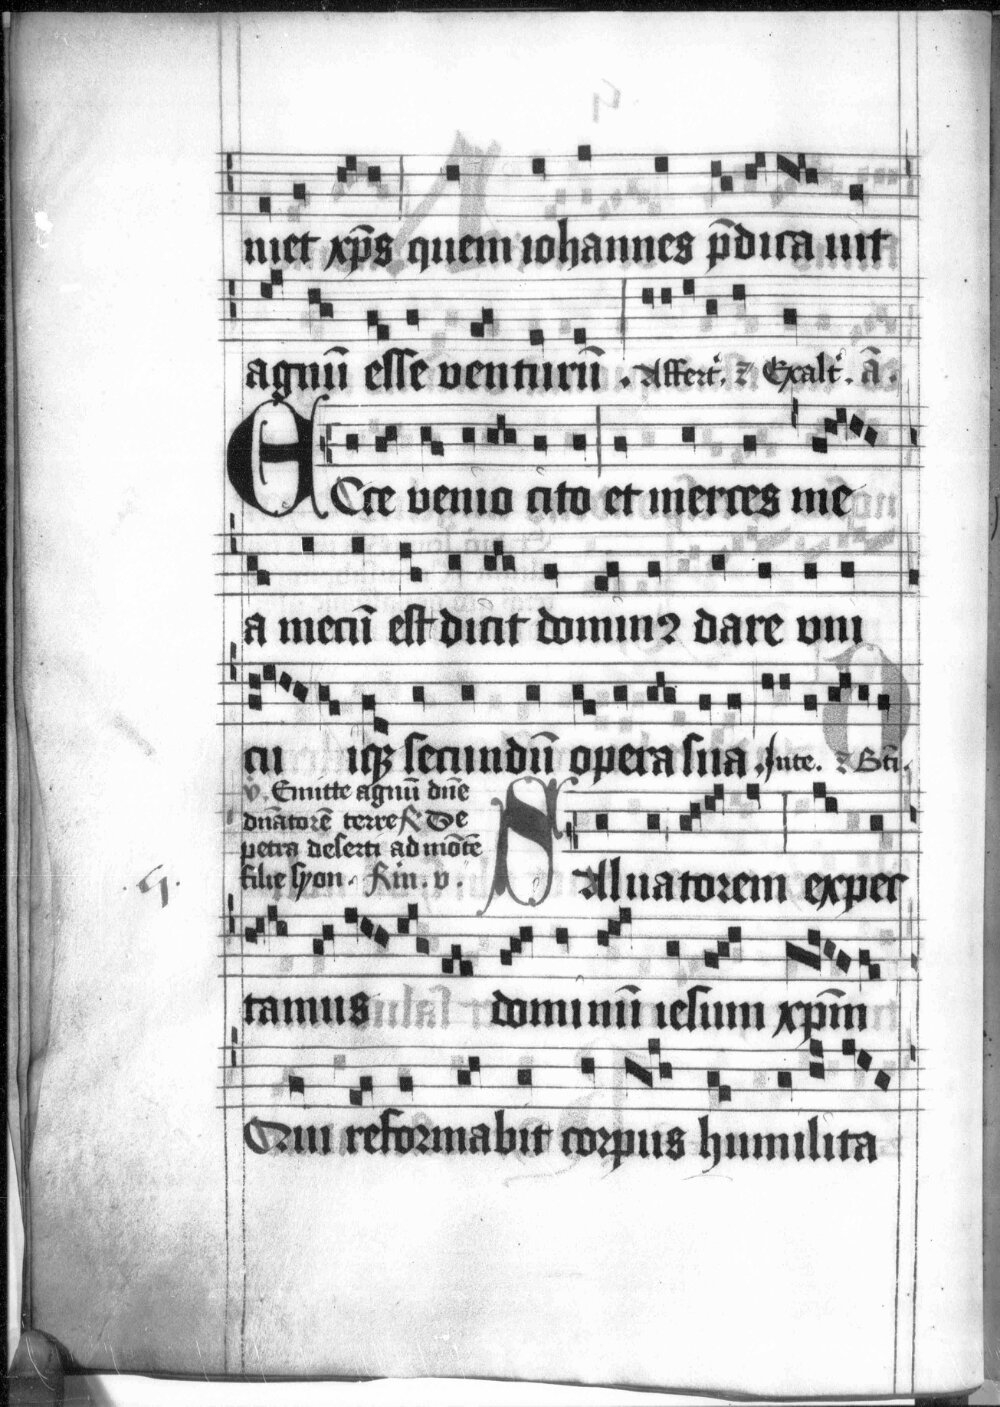 niet xp̄s quem iohannes p̄dica uit
agnū esse venturū . Affert. ⁊ Exalt. ā.
ECce venio cito et merces me
a mecū est dicit dominꝰ dare vni
cu iqꝫ secundū opera sua . Jnte. ⁊ Bn̄.
v. Emitte agnū dn̄e
dn̄atorē terre R De
petra deserti ad mōtē
filie syon.
SAluatorem expec
tamus dominū iesum xp̄m
Qui reformabit corpus humilita